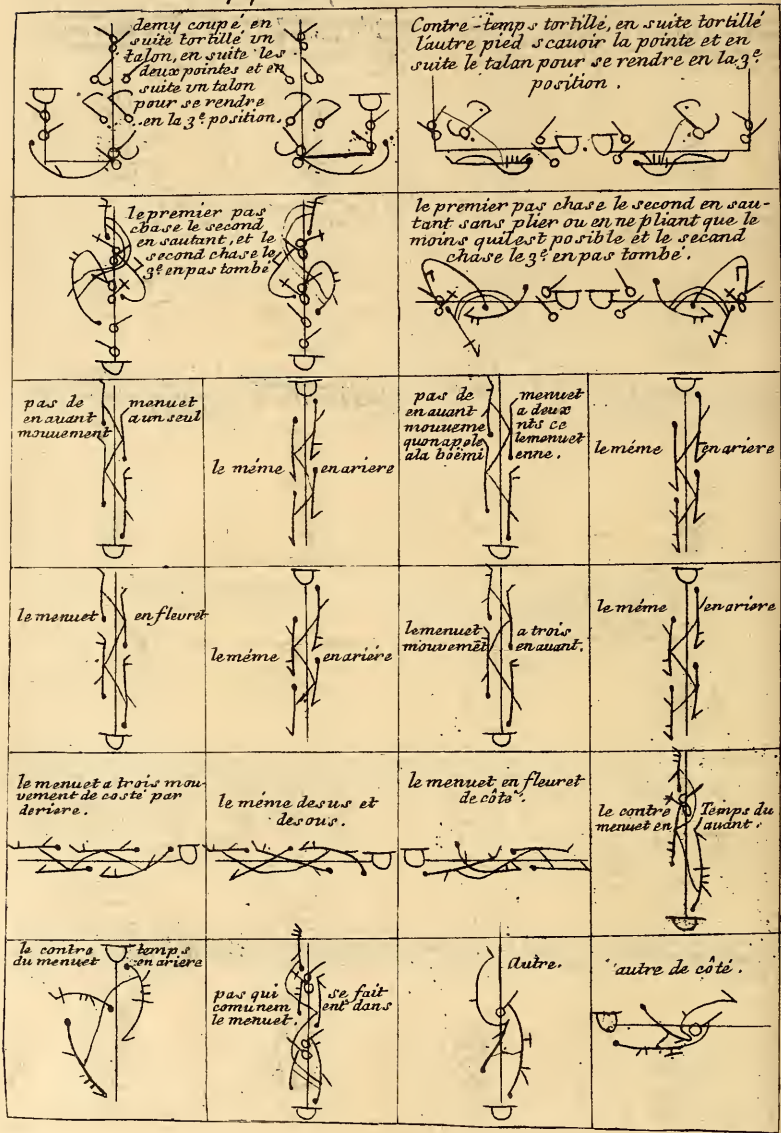 demy coupé en
suite tortillé un
talon, en suite les
deux pointes et en
suite un talon
pour se rendre
en la 3e position.
Contre-temps tortillé, en suite tortillé
lautre pied scauoir la pointe et en
suite le talan pour se rendre en la 3e
position.
le premier pas
chase le second
en sautant, et le
second chase le
3e en pas tombé
le premier pas chase le second en sau-
tant sans plier ou en ne pliant que le
moins quil est posible et le second
chase le 3e en pas tombé.
pas de menuet
en auant a un seul
mouuement
le méme en ariere
pas de menuet
en auant a deux
mouueme nts ce
quon apele le menuet
ala boëmi enne.
le méme en ariere
le menuet en fleuret
le méme en ariére
le menuet a trois
mouvemēt en auant.
le méme en ariere
le menuet a trois mou-
vement de costé par
deriere.
le méme desus et
desous.
le menuet en fleuret
de côté.
le contre Temps du
menuet en auant.
le contre temps
du menuet en ariere
pas qui se fait
comunem ent dans
le menuet.
autre.
autre de côté.